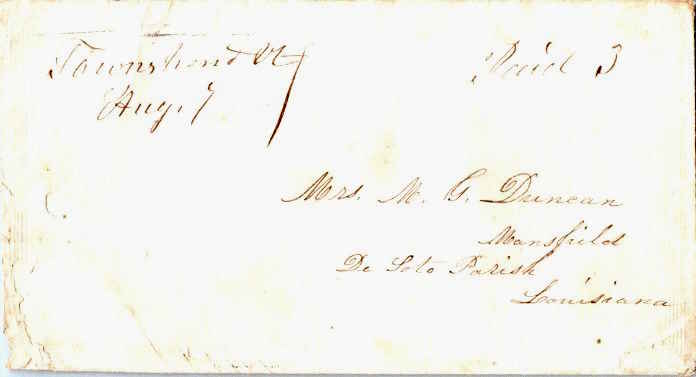 Townshend Vt
Aug. 7
Paid 3
Mrs. M. G. Duncan
Mansfield
De Soto Parish
Louisiana